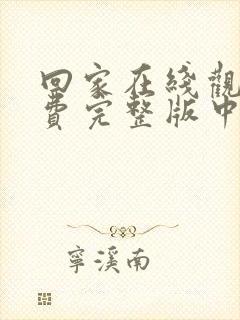 回家在綫觀
費完整版中
寧溪南